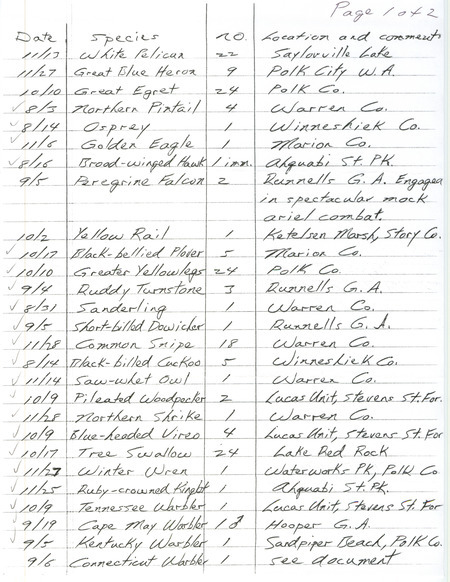 Page 1 of 2
Date Species no. Location and comments
11/13 White Pelican 22 Saylorville Lake
11/27 Great Blue Heron 9 Polk City W.A.
10/10 Great Egret 24 Polk Co.
8/3 Northern Pintail 4 Warren Co.
8/14 Osprey 1 Winneshiek Co.
11/6 Golden Eagle 1 Marion Co.
8/16 Broad-winged Hawk 1 imm. Ahquabi St. Pk.
9/5 Peregrine Falcon 2 Runnells G.A. Engaged
in spectacular mock
ariel combat.
10/2 Yellow Rail 1 Ketelsen Marsh, Story Co.
10/17 Black-bellied Plover 5 Marion Co.
10/10 Greater Yellowlegs 24 Polk Co.
9/4 Ruddy Turnstone 3 Runnells G.A.
8/21 Sanderling 1 Warren Co.
9/5 Short-billed Dowicher 1 Runnells G.A.
11/28 Common Snipe 18 Warren Co.
8/14 Black-billed Cuckoo 5 Winneshiek Co.
11/14 Saw-whet Owl 1 Warren Co.
10/9 Pileated Woodpecker 2 Lucas Unit, Stevens St. For.
11/28 Northern Shrike 1 Warren Co.
10/9 Blue-headed Vireo 4 Lucas Unit, Stevens St. For
10/17 Tree Swallow 24 Lake Red Rock
11/27 Winter Wren 1 Waterworks Pk, Polk Co
11/25 Ruby-crowned Kinglet 1 Ahquabi St. Pk.
10/9 Tennessee Warbler 1 Lucas Unit, Stevens St. For
9/19 Cape May Warbler 1♂ Hooper G.A.
9/5 Kentucky Warbler 1 Sandpiper Beach, Polk Co.
9/6 Connecticut Warbler 1 see document